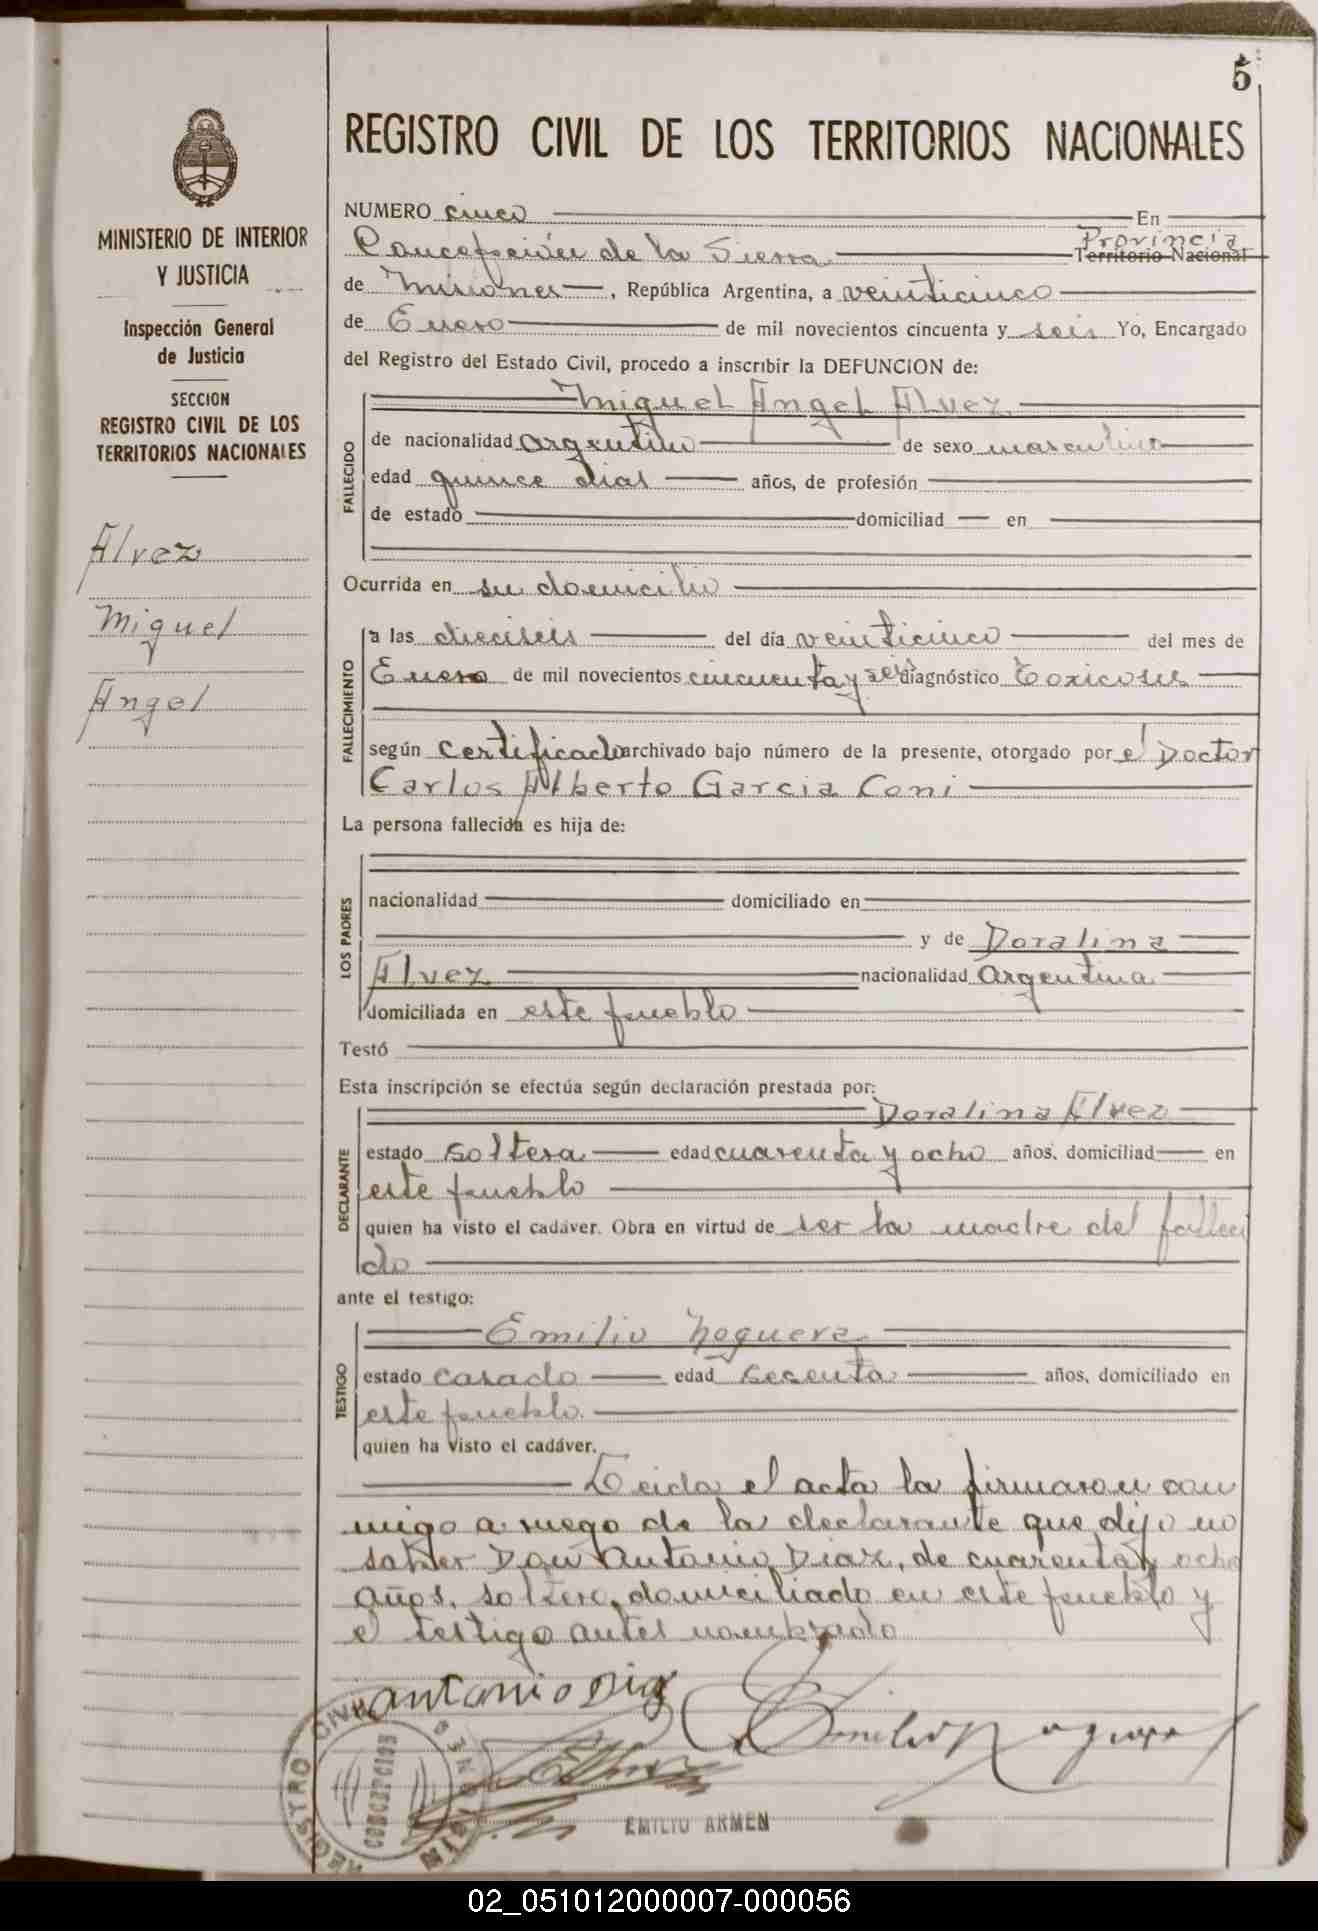 5
REGISTRO CIVIL DE LOS TERRITORIOS NACIONALES
MINISTERIO DE INTERIOR
Y JUSTICIA
Inspección General
de Justicia
SECCION
REGISTRO CIVIL DE LOS
TERRITORIOS NACIONALES
Alvez
Miguel
Angel
NUMERO cinco En
Concepción de la Sierra Provincia
Territorio Nacional
de Misiones, República Argentina, a veinticinco
de Enero de mil novecientos cincuenta y seis Yo, Encargado
del Registro del Estado Civil, procedo a inscribir la DEFUNCION de:
FALLECIDO
Miguel Angel Alvez
de nacionalidad argentino de sexo masculino
edad quince dias años, de profesión
de estado domiciliad en
Ocurrida en su domicilio
FALLECIMIENTO
a las dieciseis del día veinticinco del mes de
Enero de mil novecientos cincuenta y seis diagnóstico Toxicosis
según certificado archivado bajo número de la presente, otorgado por el Doctor
Carlos Alberto Garcia Coni
La persona fallecida es hija de:
LOS PADRES
nacionalidad domiciliado en
y de Doralina
Alvez nacionalidad argentina
domiciliada en este pueblo
Testó
Esta inscripción se efectúa según declaración prestada por:
DECLARANTE
Doralina Alvez
estado soltera edad cuarenta y ocho años, domiciliad en
este pueblo
quien ha visto el cadáver. Obra en virtud de ser la madre del falleci
do
ante el testigo:
TESTIGO
Emilio Noguera
estado casado edad sesenta años, domiciliado en
este pueblo.
quien ha visto el cadáver.
Leida el acta la firmaron con
migo a ruego de la declarante que dijo no
saber Don Antonio Diaz, de cuarenta y ocho
años, soltero, domiciliado en este pueblo y
el testigo antes nombrado
antonio Diaz
Emilio Noguera
REGISTRO CIVIL
CONCEPCION
EMILIO ARMEN
02_051012000007-000056